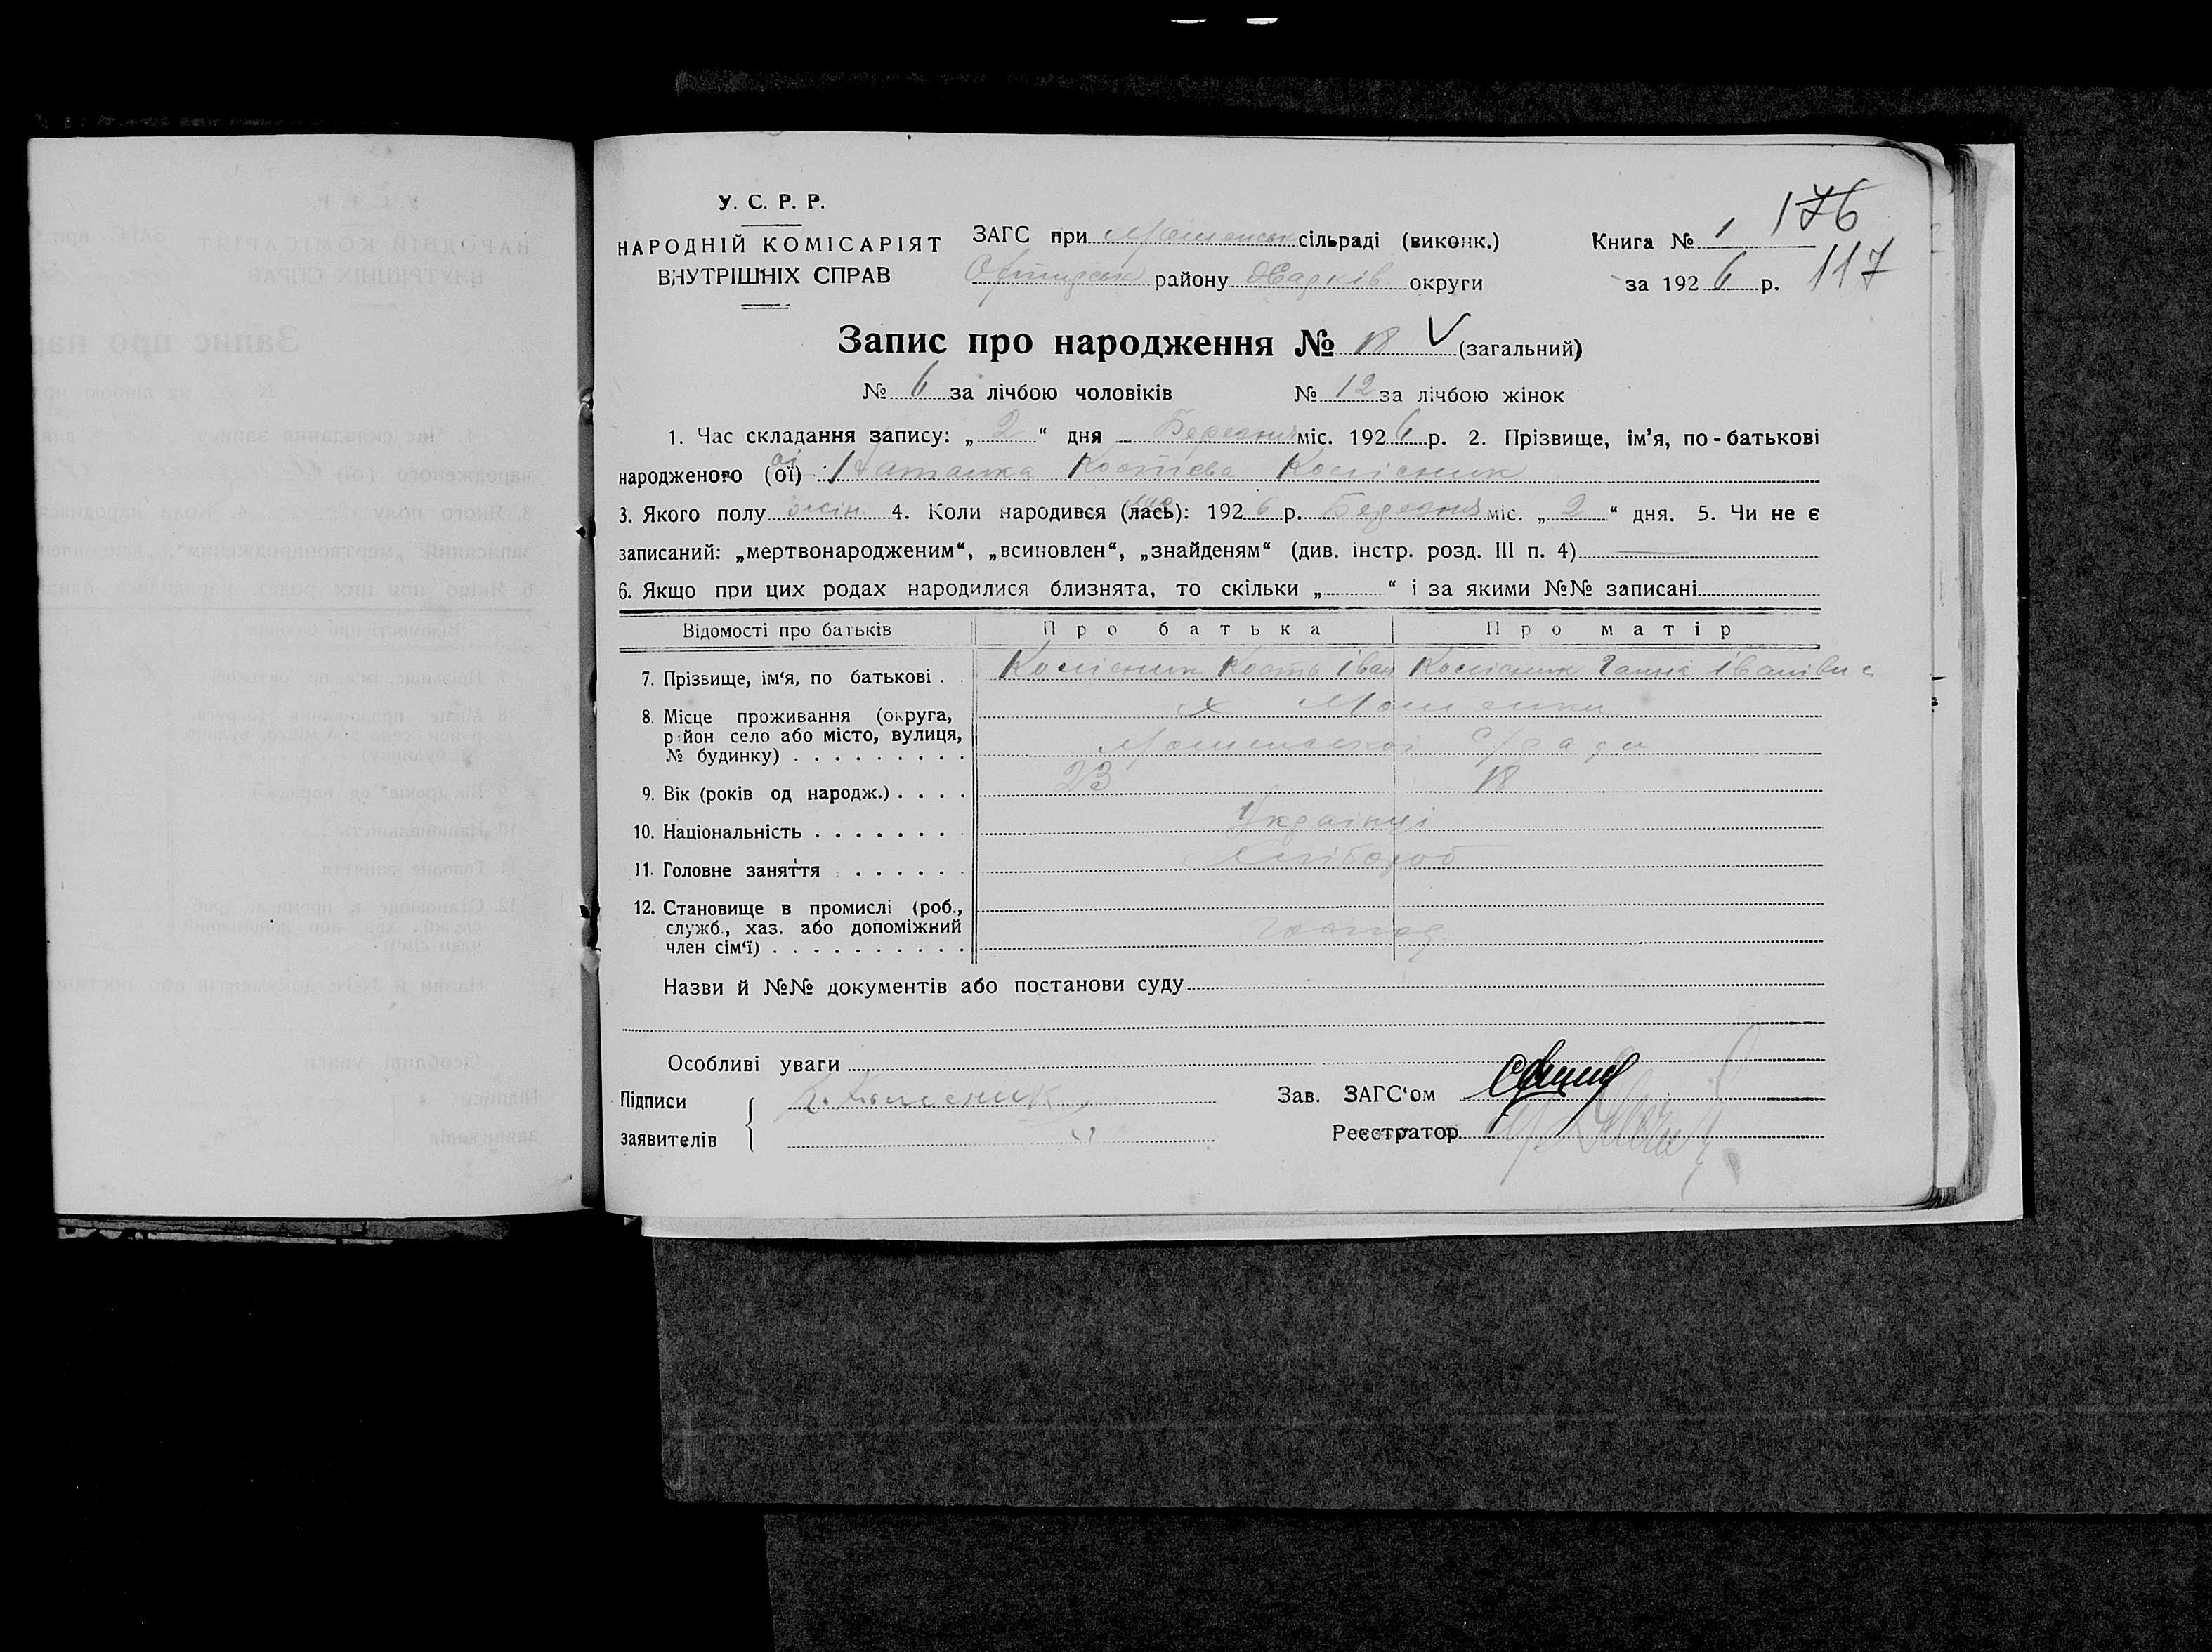 У. С. Р. Р.
НАРОДНІЙ КОМІСАРІЯТ
ВНУТРІШНІХ СПРАВ
ЗАГС при Мошенськ сільраді (виконк.)
району Харків округи
Книга № 1 176
за 1926 р. 117
Запис про народження № 18 V (загальний)
№ 6 за лічбою чоловіків № 12 за лічбою жінок
1. Час складання запису: „ 2 “ дня Березня міс. 1926 р. 2. Прізвище, ім’я, по-батькові
народженого (ої) Наталка Костєва Колісник
3. Якого полу жін. 4. Коли народився (лась): 1926 р. Березня міс. „ 2 “ дня. 5. Чи не є
записаний: „мертвонародженим“, „всиновлен“, „знайденям“ (див. інстр. розд. III п. 4)
6. Якщо при цих родах народилися близнята, то скільки „ “ і за якими №№ записані
Відомості про батьків Про батька Про матір
7. Прізвище, ім‘я, по батькові . . Колісник Кость Іван Колісник Ганна Іванівна
8. Місце проживання (округа, х Мошенки
район село або місто, вулиця, Мошенської с/ради
№ будинку) . . . . . . . . .
9. Вік (років од народж.) . . . . 23 18
10. Національність . . . . . . . Українці
11. Головне заняття . . . . . . Хлібороб
12. Становище в промислі (роб.,
служб., хаз. або допоміжний господ
член сім‘ї) . . . . . . . . . .
Назви й №№ документів або постанови суду
Особливі уваги
Підписи К. Колесник
заявителів
Зав. ЗАГС‘ом
Реєстратор